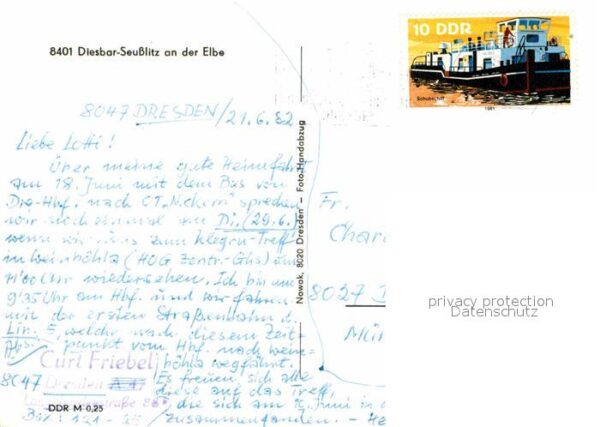 8401 Diesbar-Seußlitz an der Elbe
10 DDR
Schubschiff
1981
8047 DRESDEN/21.6.82
Liebe Lotti!
Über meine gute Heimfahrt
am 18. Juni mit dem Bus von
Hbf. nach sprechen
wir noch einmal am Di. (29.6.)
wenn wir uns zum Treff
in Weinböhla (HOG Zentr.-Ghs) um
Uhr wiedersehen. Ich bin um
9³⁵ Uhr am Hbf. und wir fahren
mit der ersten Straßenbahn d.
Lin. 5, welche nach diesem Zeit-
punkt vom Hbf. nach Wein-
böhla wegfährt.
Es freuen sich alle
diese auf das Treff,
die sich am Juni in
zusammenfanden. –
Abs.:
Curt Friebel
8047 Dresden A 47
Nowak, 8020 Dresden – Foto-Handabzug
Fr.
8027
DDR M 0,25
privacy protection
Datenschutz